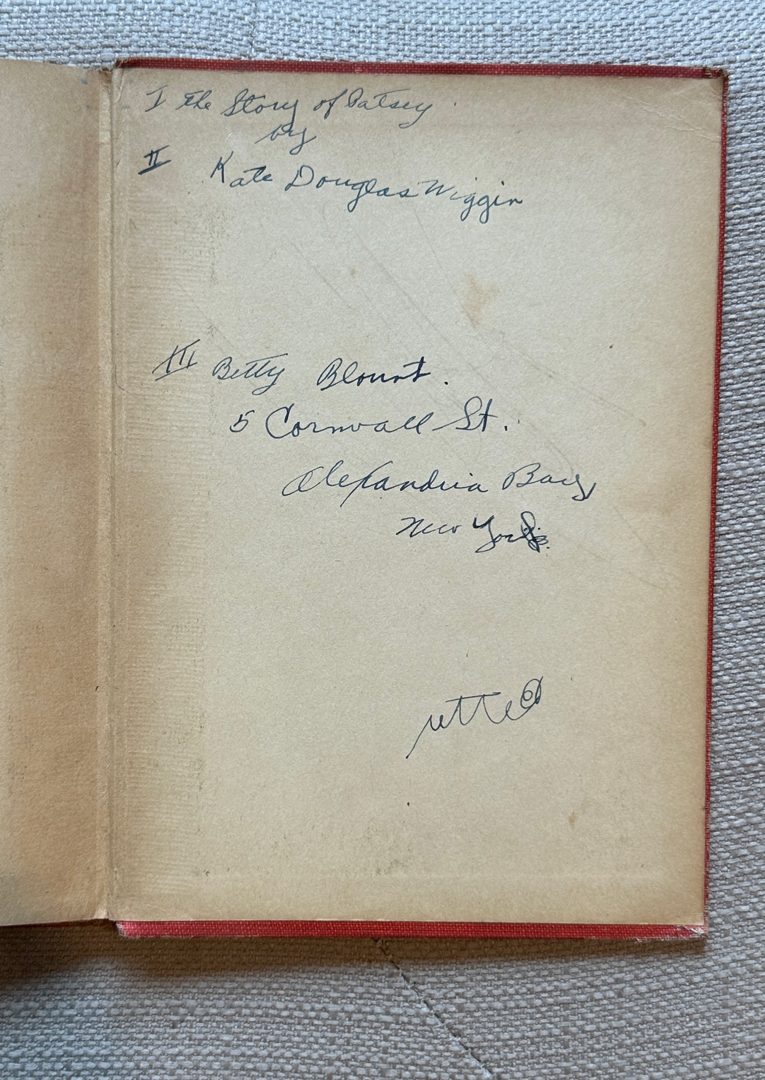 I the Story of Patsey
by
II Kate Douglas Wiggin
III Betty Blount.
5 Cornwall St.
Alexandria Bay
New York.